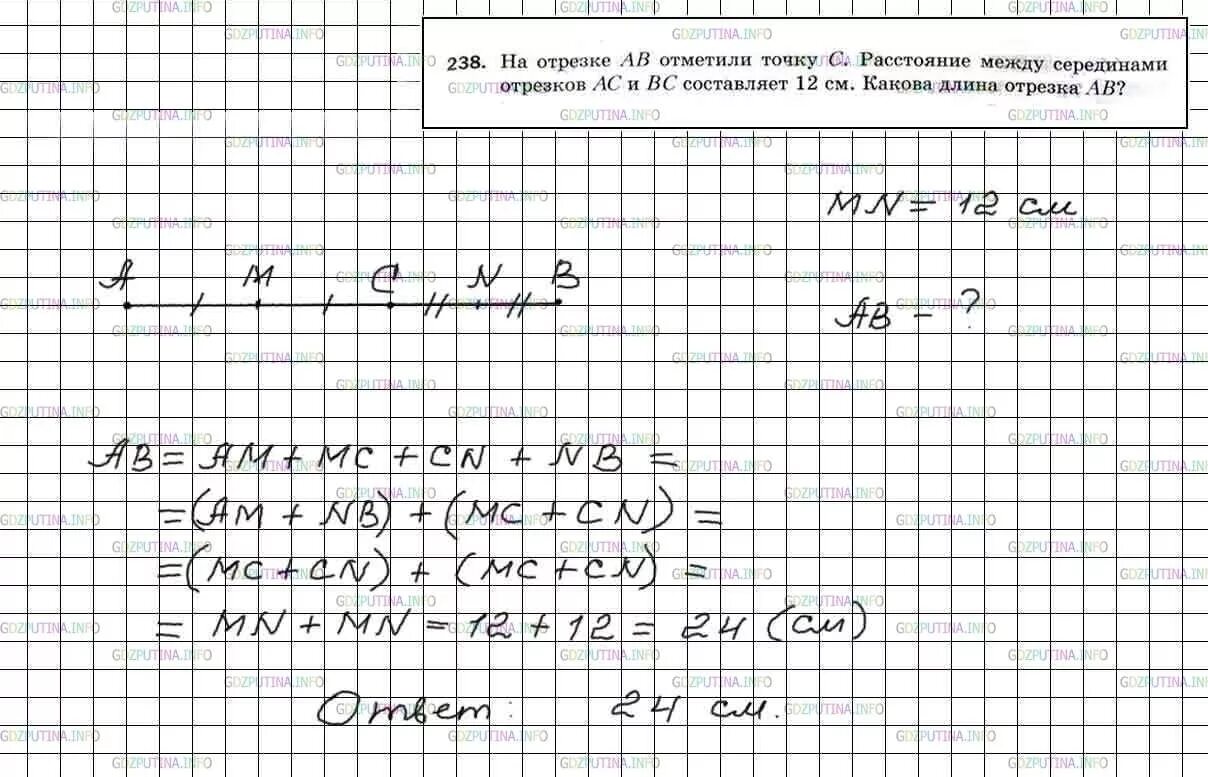 238. На отрезке AB отметили точку C. Расстояние между серединами
отрезков AC и BC составляет 12 см. Какова длина отрезка AB?
MN = 12 см
A M C N B
AB - ?
AB = AM + MC + CN + NB =
=(AM + NB) + (MC + CN) =
=(MC + CN) + (MC + CN) =
= MN + MN = 12 + 12 = 24 (см)
Ответ: 24 см.
GDZPUTINA.INFO